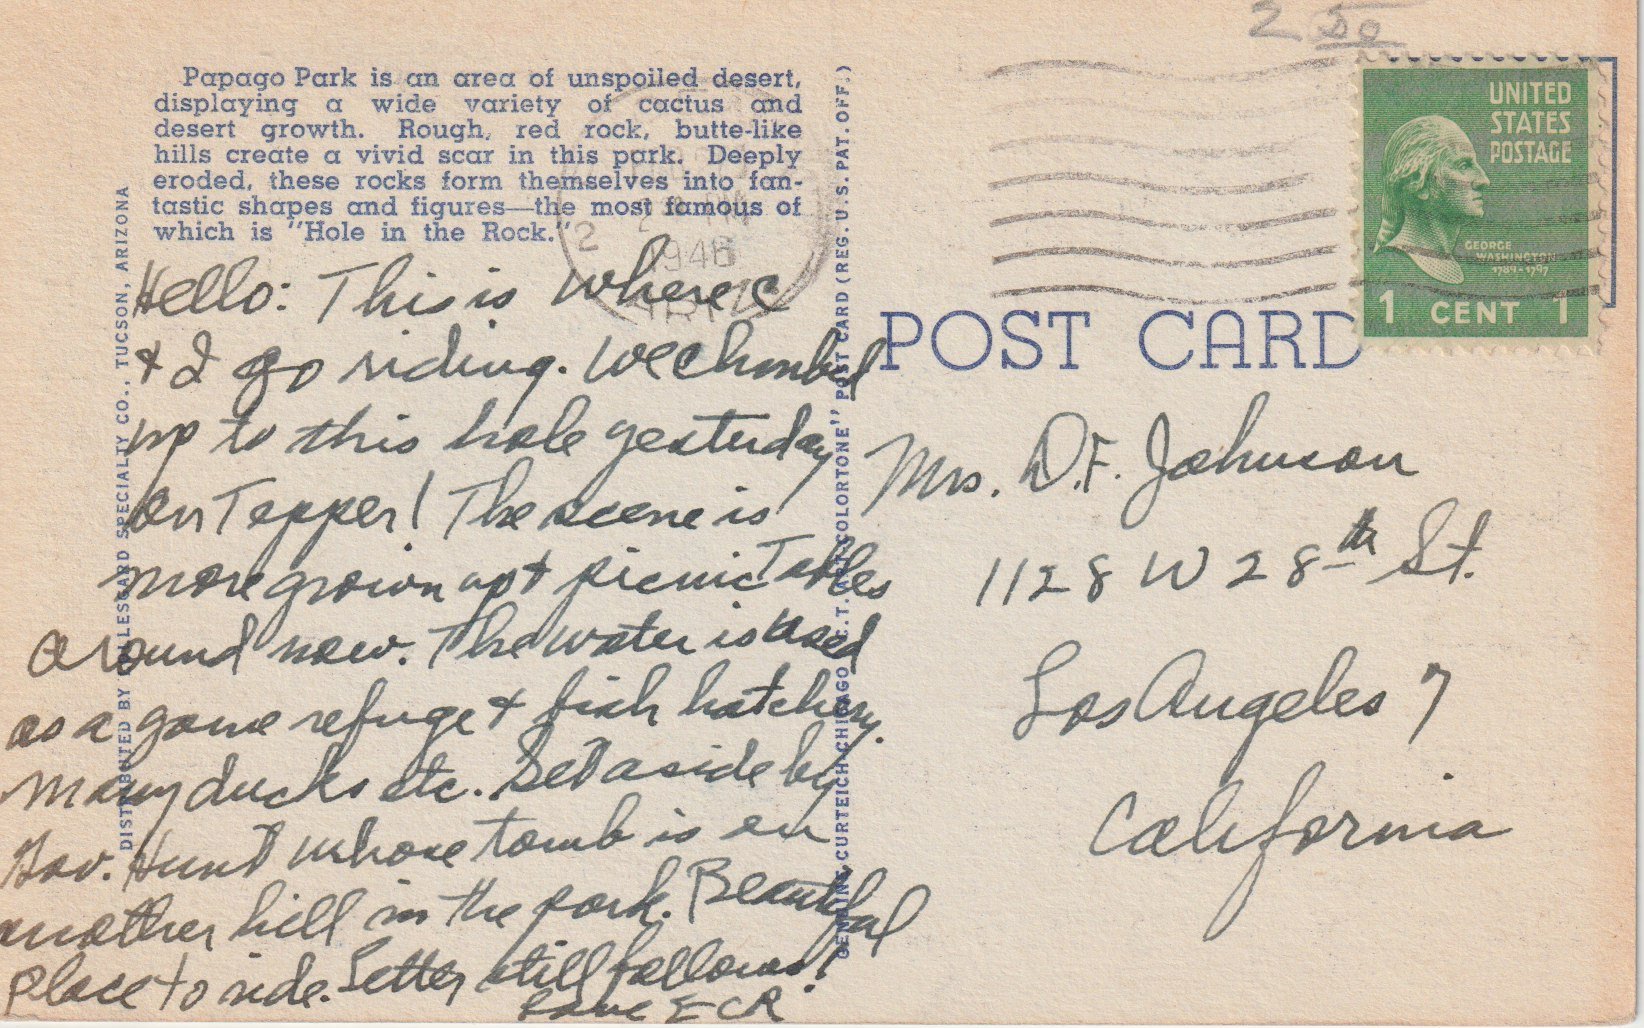 2 50
Papago Park is an area of unspoiled desert,
displaying a wide variety of cactus and
desert growth. Rough, red rock, butte-like
hills create a vivid scar in this park. Deeply
eroded, these rocks form themselves into fan-
tastic shapes and figures—the most famous of
which is "Hole in the Rock."
Hello: This is where C
& I go riding. We climbed
up to this hole yesterday
on Tepper! The scene is
more grown up & picnic Tables
around now. The water is used
as a game refuge & fish hatchery.
Many ducks etc. Set aside by
Gov. Hunt whose tomb is on
another hill in the park. Beautiful
Place to ride. Letter still follows!
Love ECR
DISTRIBUTED BY LOLLESGARD SPECIALTY CO., TUCSON, ARIZONA
GENUINE CURTEICH-CHICAGO "C.T. ART-COLORTONE" POST CARD (REG. U.S. PAT. OFF.)
2
1946
ARIZ
UNITED
STATES
POSTAGE
GEORGE
WASHINGTON
1789-1797
1 CENT 1
POST CARD
Mrs. D.F. Johnson
1128 W 28th St.
Los Angeles 7
California